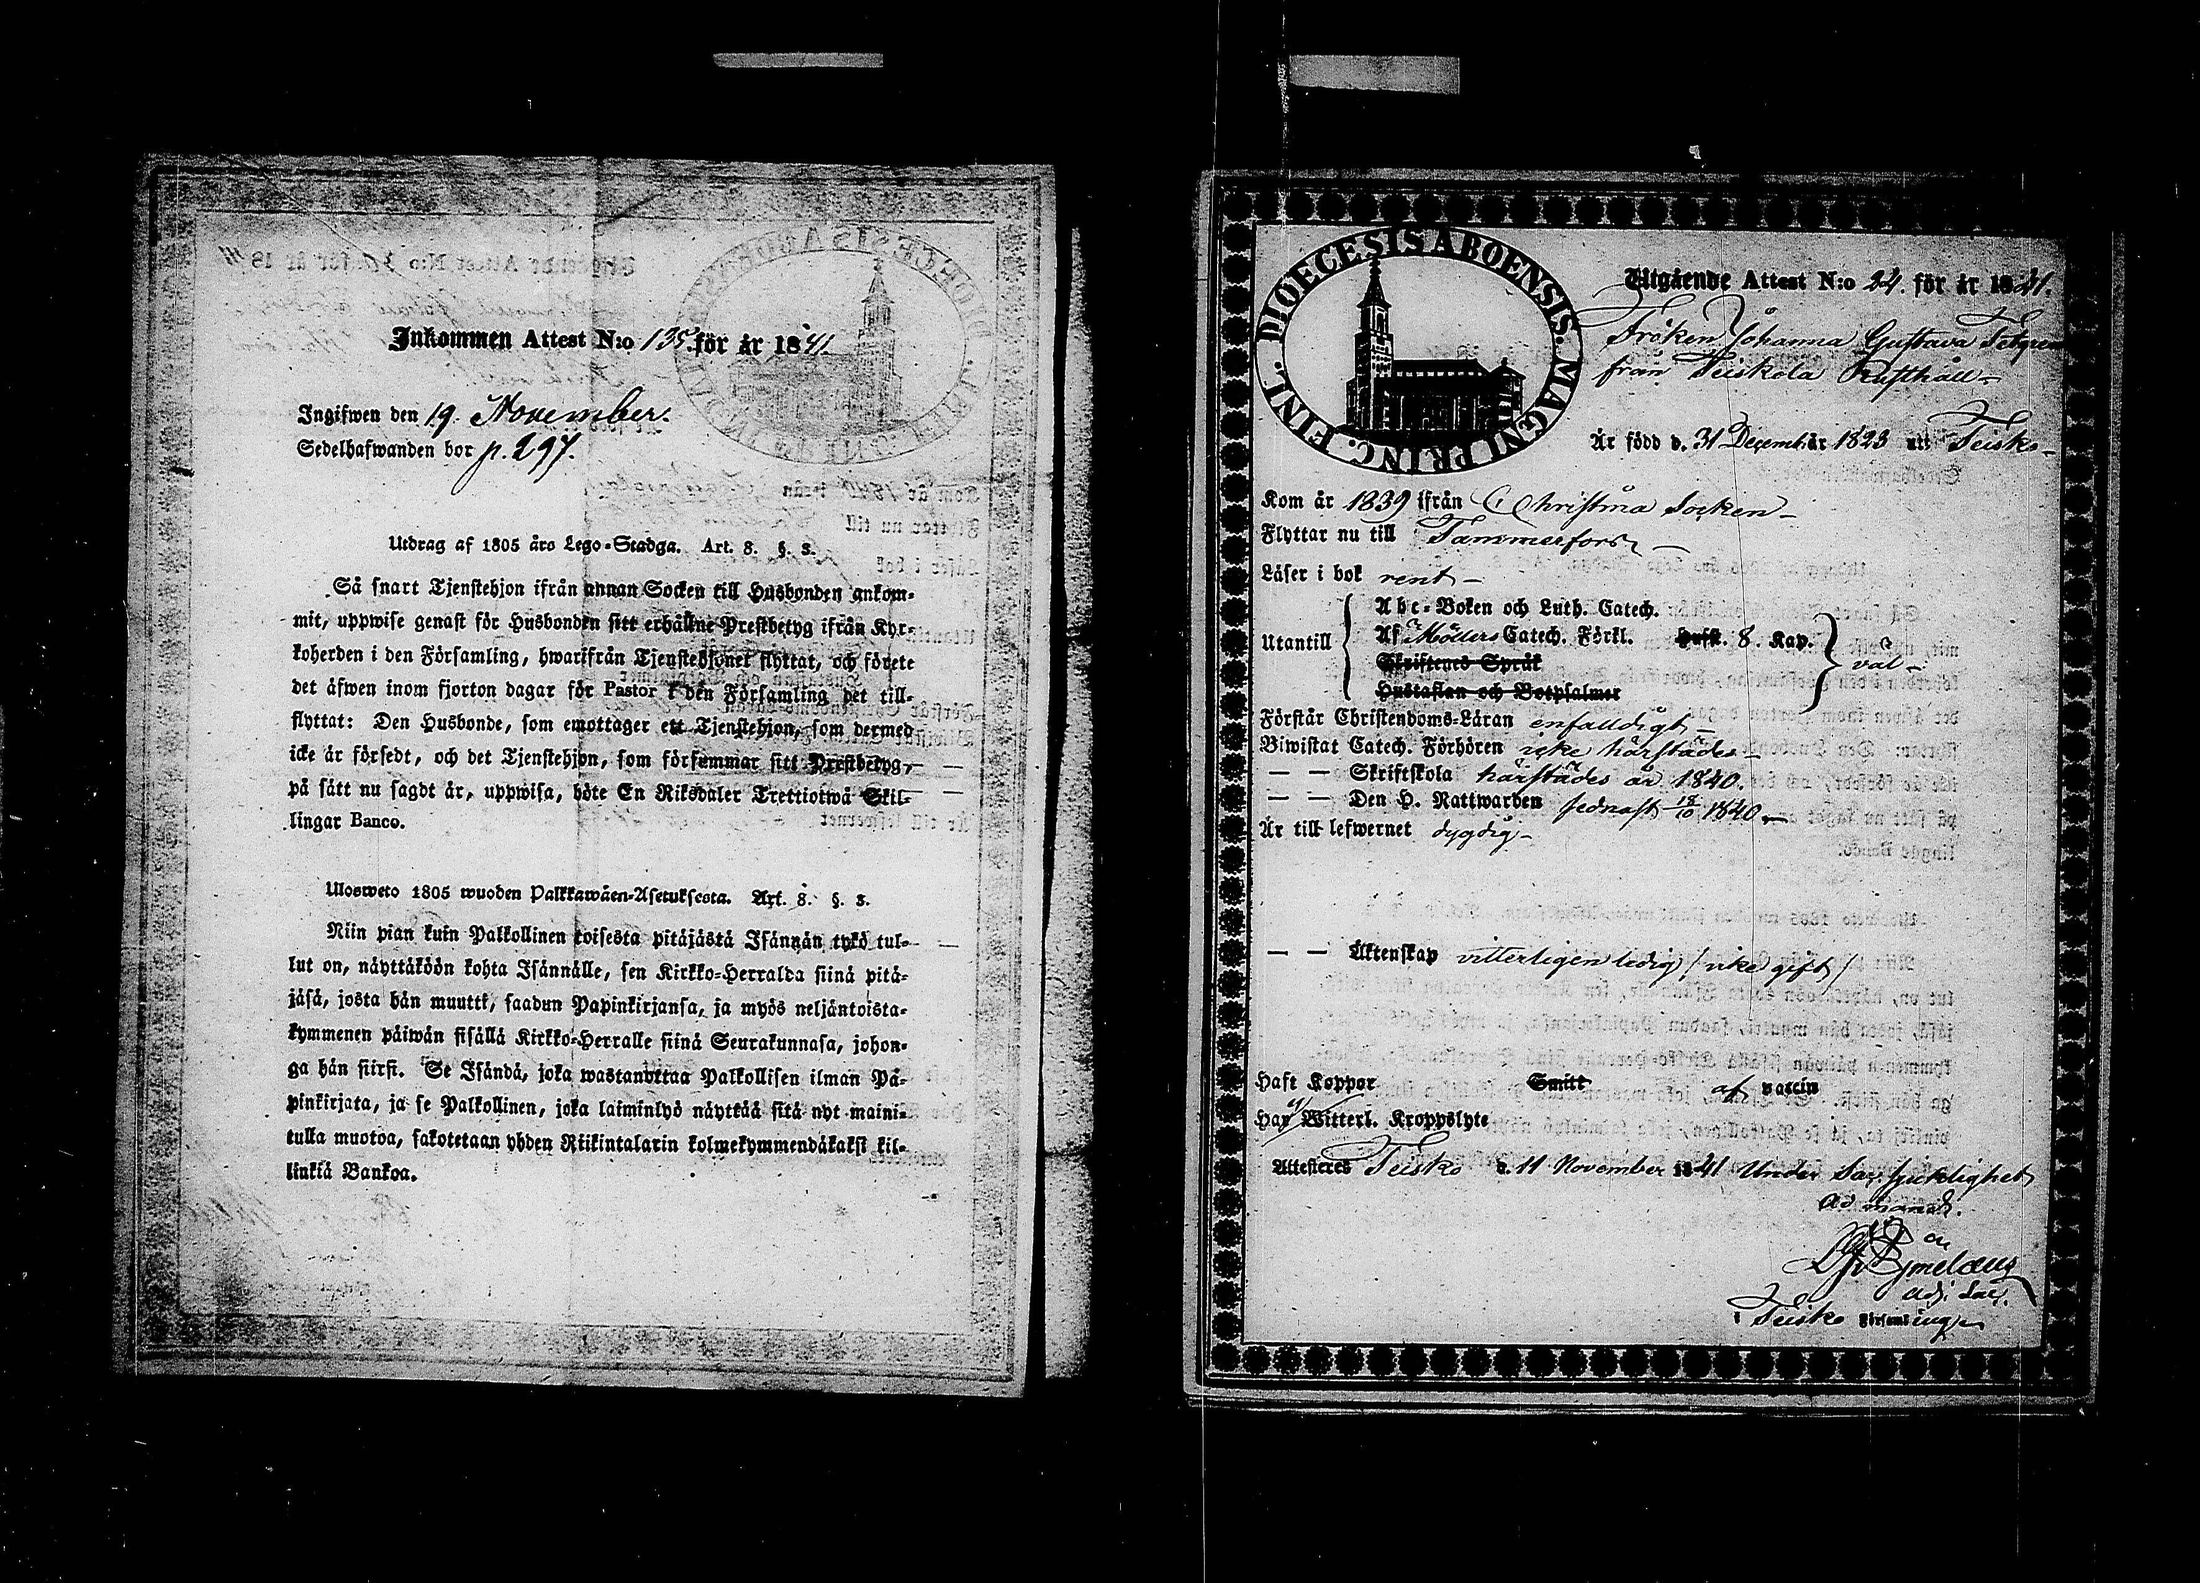 Inkommen Attest N:o 135. för år 1841.
Ingifwen den 19. November.
Sedelhafwanden bor p. 297.
Utdrag af 1805 års Lego-Stadga. Art. 8. §. 3.
Så snart Tjenstehjon ifrån annan Socken till Husbonden ankom-
mit, uppwise genast för Husbonden sitt erhållne Prestbetyg ifrån Kyr-
koherden i den Församling, hwarifrån Tjenstehjonet flyttat, och förete
det äfwen inom fjorton dagar för Pastor i den Församling det till-
flyttat: Den Husbonde, som emottager ett Tjenstehjon, som dermed
icke är försedt, och det Tjenstehjon, som försummar sitt Prestbetyg,
på sätt nu sagdt är, uppwisa, böte En Riksdaler Trettiotwå Skil-
lingar Banco.
Ulosweto 1805 wuoden Palkkawäen-Asetuksesta. Art. 8. §. 3.
Niin pian kuin Palkollinen toisesta pitäjästä Isännän tykö tul-
lut on, näyttäköön kohta Isännälle, sen Kirkko-Herralda siinä pitä-
jäsä, josta hän muutti, saadun Papinkirjansa, ja myös neljäntoista-
kymmenen päiwän sisällä Kirkko-Herralle siinä Seurakunnasa, johon-
ga hän siirsi. Se Isändä, joka wastanottaa Palkollisen ilman Pa-
pinkirjata, ja se Palkollinen, joka laiminlyö näyttää sitä nyt maini-
tulla muotoa, sakotetaan yhden Riikintalarin kolmekymmendäkaksi kil-
linkiä Bankoa.
DIOECESIS ABOENSIS. MAGNI PRINC. FINL.
Utgående Attest N:o 24. för år 1841.
Fröken Johanna Gustava
från Teiskola Rusthåll
Är född d. 31 December år 1823 uti Teisko
Kom år 1839 ifrån Christina Socken
Flyttar nu till Tammerfors
Läser i bok rent
Utantill
Abc-Boken och Luth. Catech.
Af Möllers Catech. Förkl. Hufst. 8. Kap.
Skriftenes Språk
Hustaflan och Botpsalmer
väl
Förstår Christendoms-Läran enfalldigt
Biwistat Catech. Förhören icke härstädes
— — Skriftskola härstädes år 1840.
— — Den H. Nattwarden sednast 18/10 1840.
Är till lefwernet dygdig
— — Äktenskap vitterligen ledig / icke gift /
Haft Koppor Smitt af vaccin
Har Witterl. Kroppslyte
Attesteras Teisko d. 11 November 1841 Under Sac. sjuklighet
ad mand.
adj. Sac.
i Teisko Församling